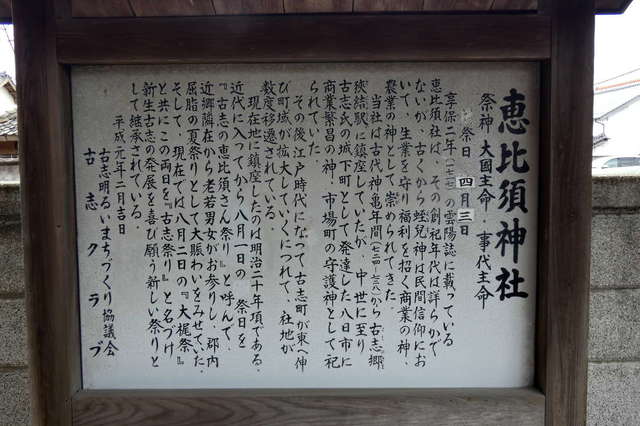 恵比須神社
祭神 大國主命 事代主命
祭日 四月三日
享保二年(一七一七)の雲陽誌に載っている
恵比須社は、その創祀年代は詳らかで
ないが、古くから蛭兒神は民間信仰にお
いて、生業を守り福利を招く商業の神、
農業の神として崇められてきた。
当社は古代神亀年間(七二四-七二八)から古志郷
狹結駅に鎮座していたが、中世に至り
古志氏の城下町として発達した八日市に
商業繁昌の神、市場町の守護神として祀
られていた。
その後江戸時代になって古志町が東へ伸
び町域が拡大していくにつれて、社地が
数度移遷されている。
現在地に鎮座したのは明治二十年頃である。
近代に入ってから八月一日の 祭日を
『古志の恵比須さん祭り』と呼んで、
近郷隣在から老若男女がお参りし、郡内
屈指の夏祭りとして大賑わいをみせていた。
そして、現在では八月二日の『大梶祭』
と共にこの両日を『古志祭り』と名づけ
新生古志の発展を喜び願う新しい祭りと
して継承されている。
平成元年二月吉日
古志明るいまちづくり協議会
古志クラブ